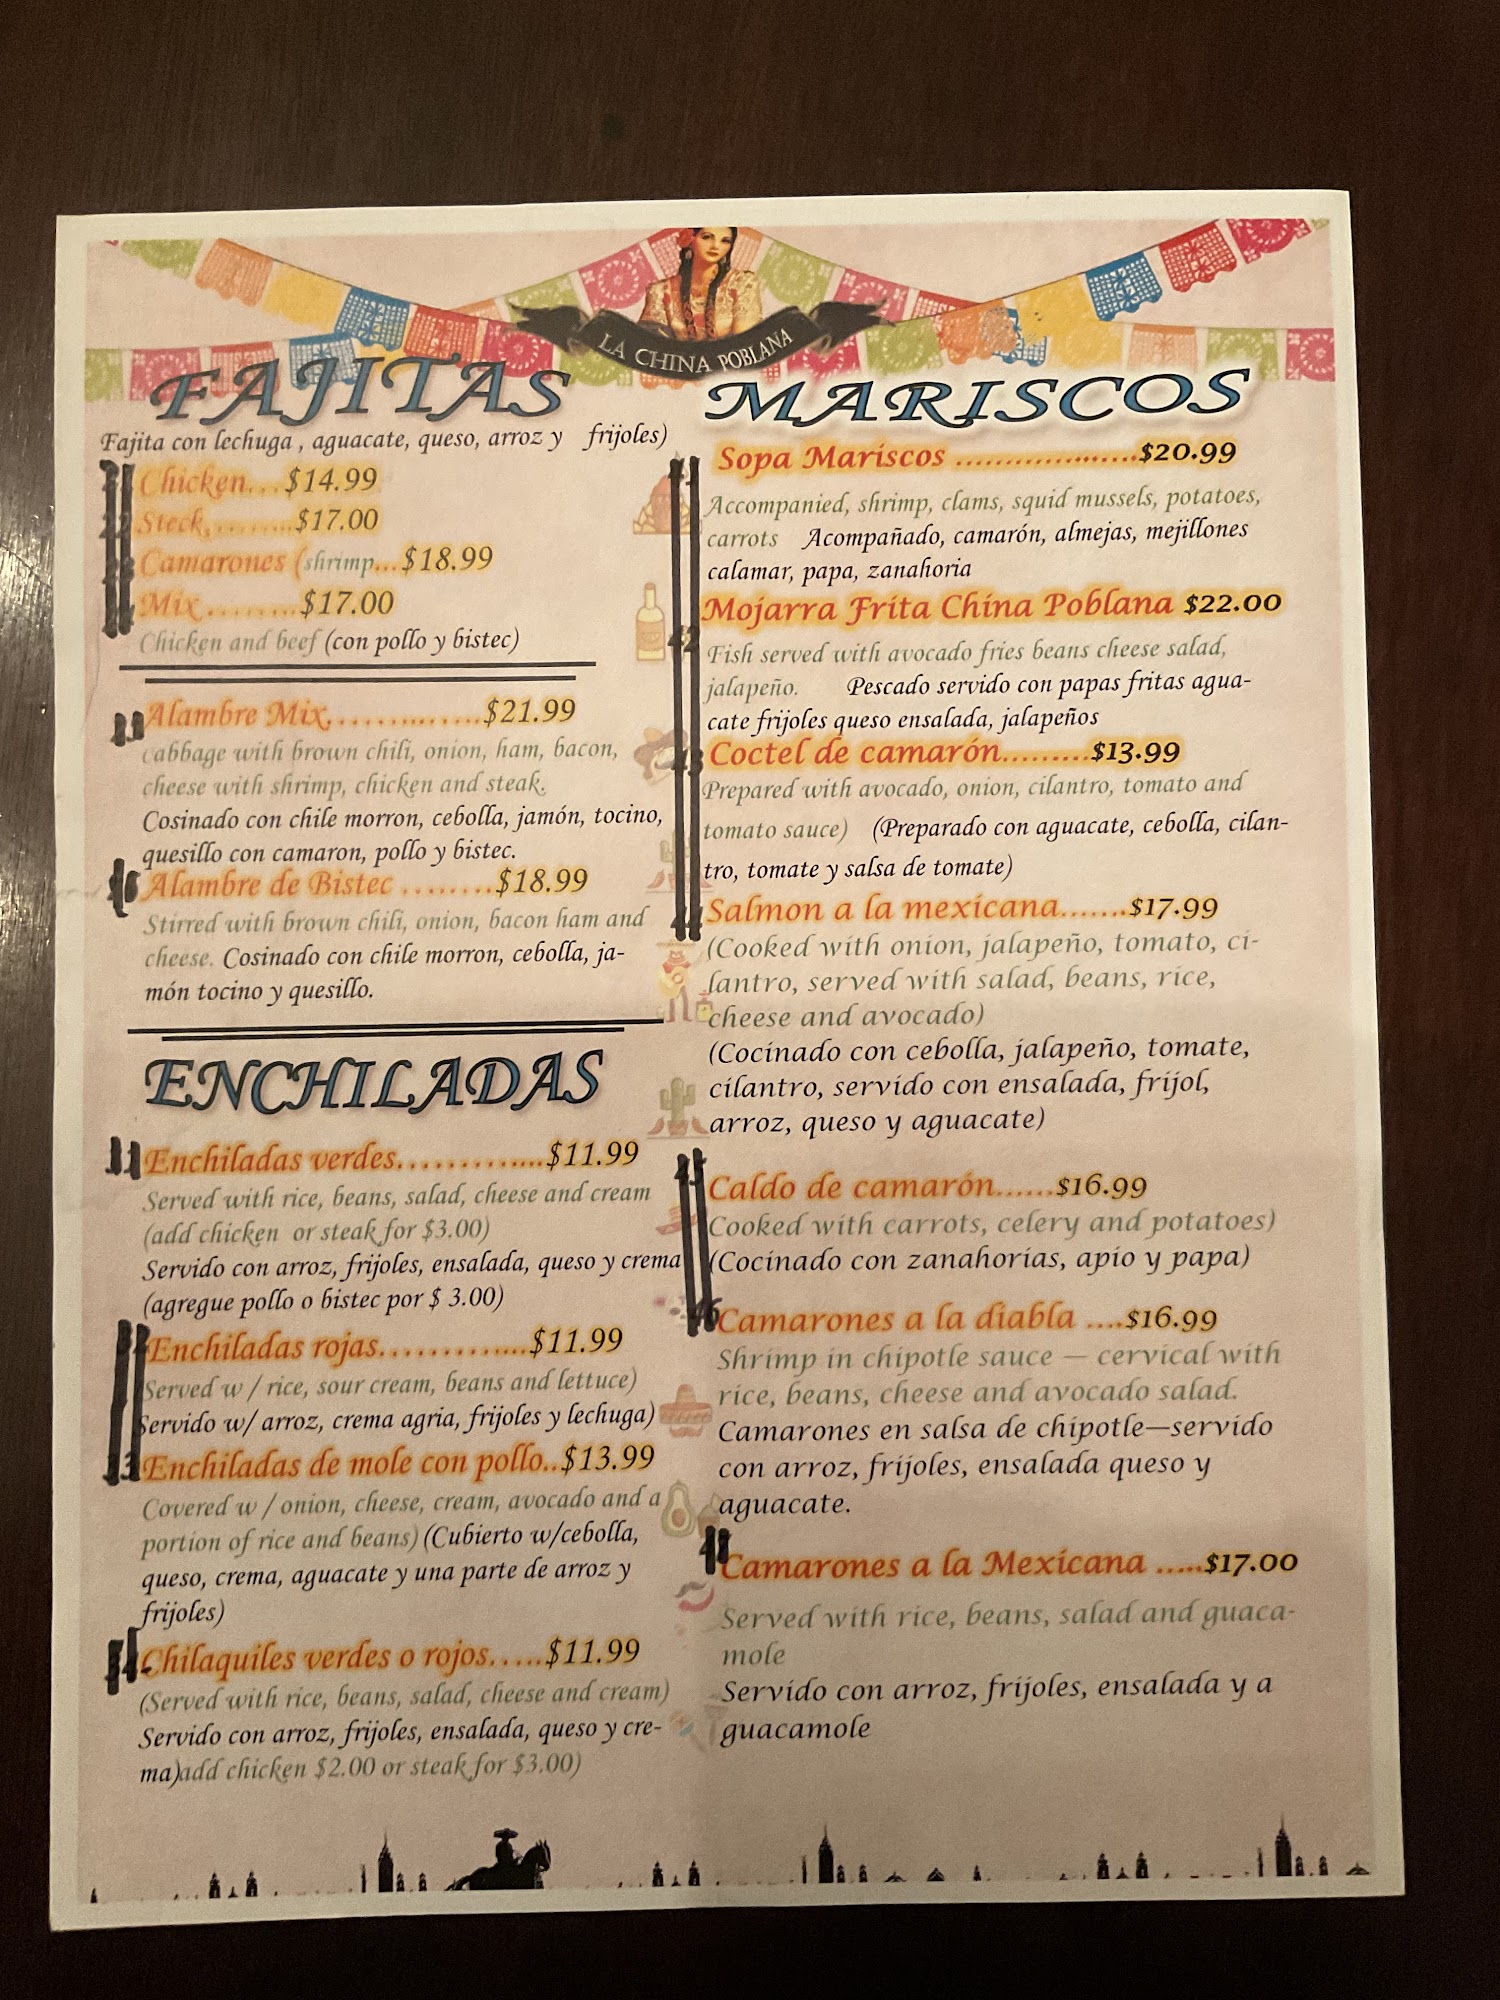 LA CHINA POBLANA
FAJITAS
Fajita con lechuga , aguacate, queso, arroz y frijoles)
Chicken...$14.99
Steck,........$17.00
Camarones (shrimp...$18.99
Mix.........$17.00
Chicken and beef (con pollo y bistec)
Alambre Mix..............$21.99
cabbage with brown chili, onion, ham, bacon,
cheese with shrimp, chicken and steak.
Cosinado con chile morron, cebolla, jamón, tocino,
quesillo con camaron, pollo y bistec.
Alambre de Bistec ........$18.99
Stirred with brown chili, onion, bacon ham and
cheese. Cosinado con chile morron, cebolla, ja-
món tocino y quesillo.
ENCHILADAS
Enchiladas verdes.............$11.99
Served with rice, beans, salad, cheese and cream
(add chicken or steak for $3.00)
Servido con arroz, frijoles, ensalada, queso y crema
(agregue pollo o bistec por $ 3.00)
Enchiladas rojas.............$11.99
Served w / rice, sour cream, beans and lettuce)
Servido w/ arroz, crema agria, frijoles y lechuga)
13 Enchiladas de mole con pollo..$13.99
Covered w / onion, cheese, cream, avocado and a
portion of rice and beans) (Cubierto w/cebolla,
queso, crema, aguacate y una parte de arroz y
frijoles)
Chilaquiles verdes o rojos.....$11.99
(Served with rice, beans, salad, cheese and cream)
Servido con arroz, frijoles, ensalada, queso y cre-
ma)add chicken $2.00 or steak for $3.00)
MARISCOS
Sopa Mariscos ..................$20.99
Accompanied, shrimp, clams, squid mussels, potatoes,
carrots Acompañado, camarón, almejas, mejillones
calamar, papa, zanahoria
Mojarra Frita China Poblana $22.00
Fish served with avocado fries beans cheese salad,
jalapeño. Pescado servido con papas fritas agua-
cate frijoles queso ensalada, jalapeños
Coctel de camarón.........$13.99
Prepared with avocado, onion, cilantro, tomato and
tomato sauce) (Preparado con aguacate, cebolla, cilan-
tro, tomate y salsa de tomate)
Salmon a la mexicana.......$17.99
(Cooked with onion, jalapeño, tomato, ci-
lantro, served with salad, beans, rice,
cheese and avocado)
(Cocinado con cebolla, jalapeño, tomate,
cilantro, servido con ensalada, frijol,
arroz, queso y aguacate)
Caldo de camarón......$16.99
Cooked with carrots, celery and potatoes)
(Cocinado con zanahorias, apio y papa)
Camarones a la diabla ....$16.99
Shrimp in chipotle sauce — cervical with
rice, beans, cheese and avocado salad.
Camarones en salsa de chipotle—servido
con arroz, frijoles, ensalada queso y
aguacate.
Camarones a la Mexicana .....$17.00
Served with rice, beans, salad and guaca-
mole
Servido con arroz, frijoles, ensalada y a
guacamole